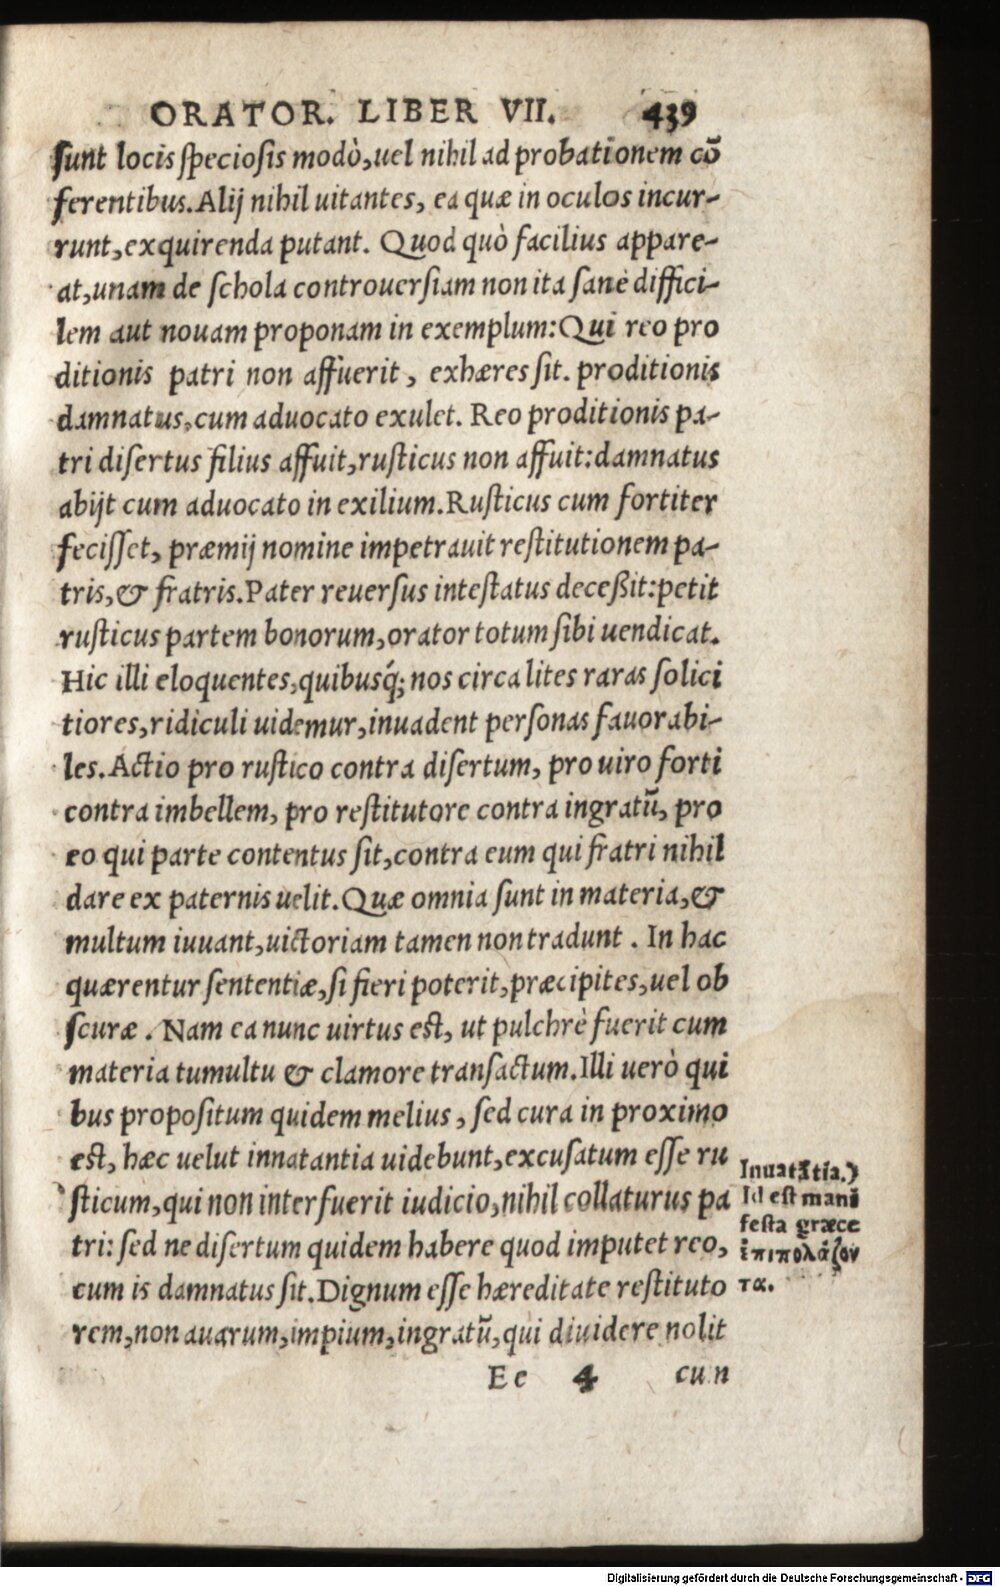 ORATOR. LIBER VII. 439
sunt locis speciosis modò, uel nihil ad probationem cō
ferentibus. Alij nihil uitantes, ea quæ in oculos incur-
runt, exquirenda putant. Quod quò facilius appare-
at, unam de schola controuersiam non ita sanè diffici-
lem aut nouam proponam in exemplum: Qui reo pro
ditionis patri non affuerit, exhæres sit. proditionis
damnatus, cum aduocato exulet. Reo proditionis pa-
tri disertus filius affuit, rusticus non affuit: damnatus
abijt cum aduocato in exilium. Rusticus cum fortiter
fecisset, præmij nomine impetrauit restitutionem pa-
tris, & fratris. Pater reuersus intestatus deceßit: petit
rusticus partem bonorum, orator totum sibi uendicat.
Hic illi eloquentes, quibusq́; nos circa lites raras solici
tiores, ridiculi uidemur, inuadent personas fauorabi-
les. Actio pro rustico contra disertum, pro uiro forti
contra imbellem, pro restitutore contra ingratū, pro
eo qui parte contentus sit, contra eum qui fratri nihil
dare ex paternis uelit. Quæ omnia sunt in materia, &
multum iuuant, uictoriam tamen non tradunt. In hac
quærentur sententiæ, si fieri poterit, præcipites, uel ob
scuræ. Nam ea nunc uirtus est, ut pulchrè fuerit cum
materia tumultu & clamore transactum. Illi uerò qui
bus propositum quidem melius, sed cura in proximo
est, hæc uelut innatantia uidebunt, excusatum esse ru
sticum, qui non interfuerit iudicio, nihil collaturus pa
tri: sed ne disertum quidem habere quod imputet reo,
cum is damnatus sit. Dignum esse hæreditate restituto
rem, non auarum, impium, ingratū, qui diuidere nolit
Ee 4 cun
Inuatātia.)
Id est mani
festa græce
ἐπιπολάζον
τα.
Digitalisierung gefördert durch die Deutsche Forschungsgemeinschaft - DFG